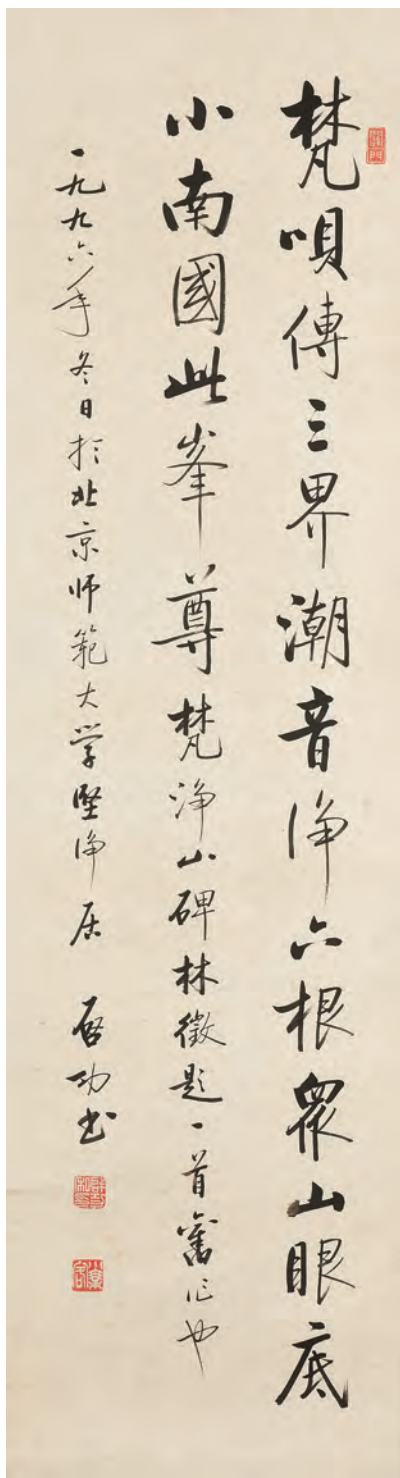 梵唄傳三界潮音浄六根眾山眼底
小南國此峯尊梵淨山碑林徵題一首舊作也
一九九六年冬日於北京师範大学堅净居 启功书